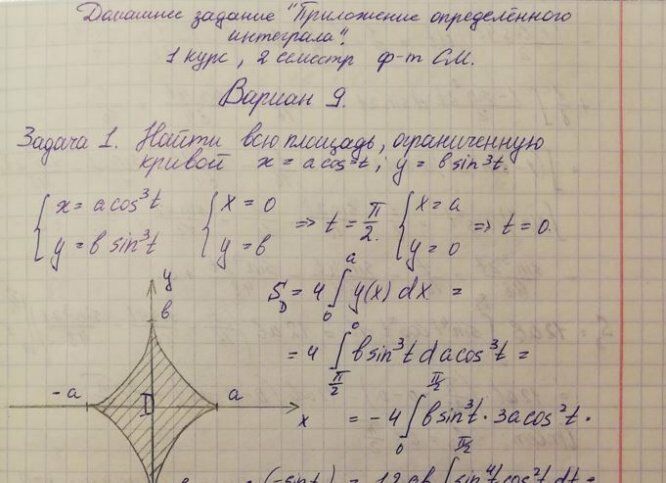 Домашнее задание "Приложение определённого
интеграла".
1 курс, 2 семестр ф-т СМ.
Вариан 9.
Задача 1. Найти всю площадь, ограниченную
кривой x = a cos³t; y = b sin³t.
{ x = a cos³t { x = 0 => t = π/2. { x = a => t = 0.
{ y = b sin³t { y = b { y = 0
y
b
-a
a
D
x
S_D = 4 ∫₀ᵃ y(x) dx =
= 4 ∫_{π/2}^0 b sin³t d a cos³t =
= -4 ∫_0^{π/2} b sin³t · 3a cos²t ·
· (-sin t) = 12ab ∫^{π/2} sin⁴t cos²t dt =